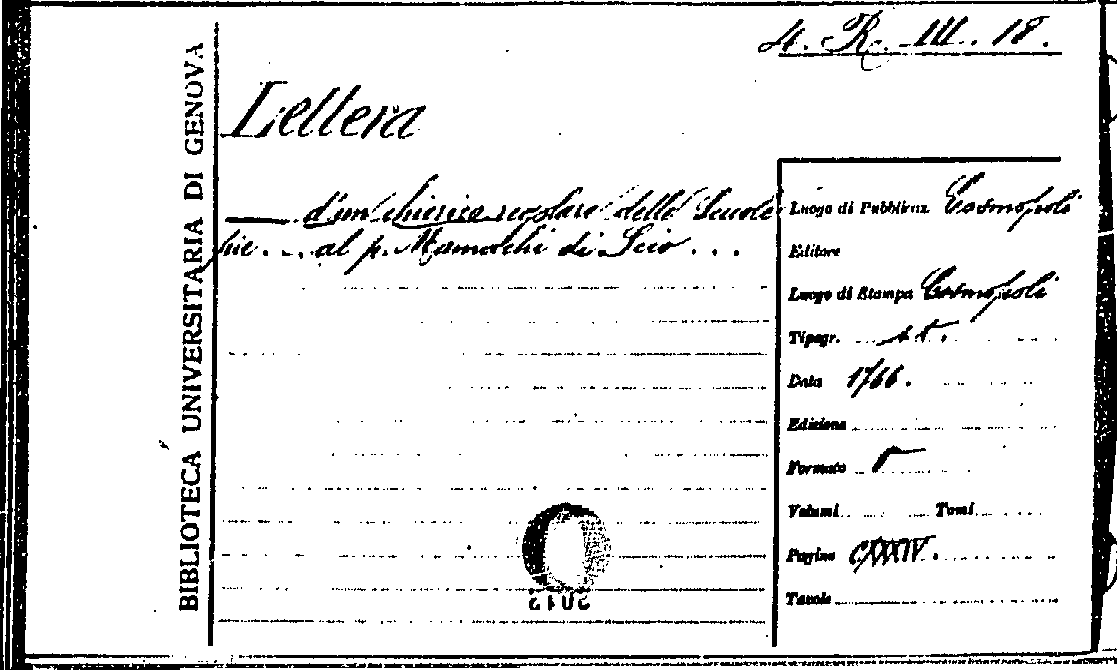 4. R. III. 18.
BIBLIOTECA UNIVERSITARIA DI GENOVA
Lettera
d'un chierico regolare delle Scuole
pie... al p. Mamachi di Scio...
Luogo di Pubblicaz. Cosmopoli
Editore
Luogo di Stampa Cosmopoli
Tipogr.
Data 1766.
Edizione
Formato 8
Volumi Tomi
Pagine CXXXIV.
Tavole